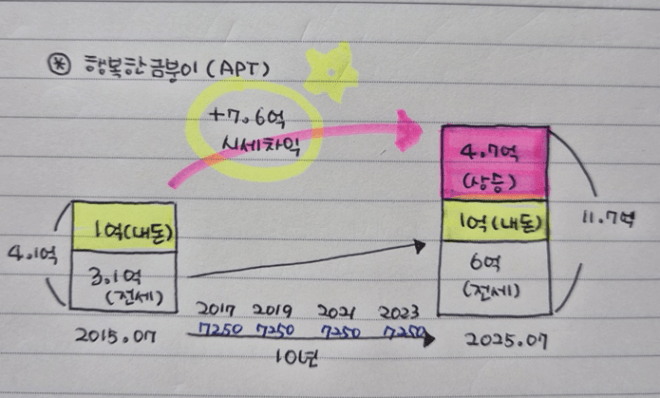 ※ 행복한 금붕이 (APT)
+7.6억
시세차익
4.1억
1억(내돈)
3.1억
(전세)
2015.07
2017 2019 2021 2023
7250 7250 7250 7250
10년
4.7억
(상승)
1억(내돈)
6억
(전세)
11.7억
2025.07